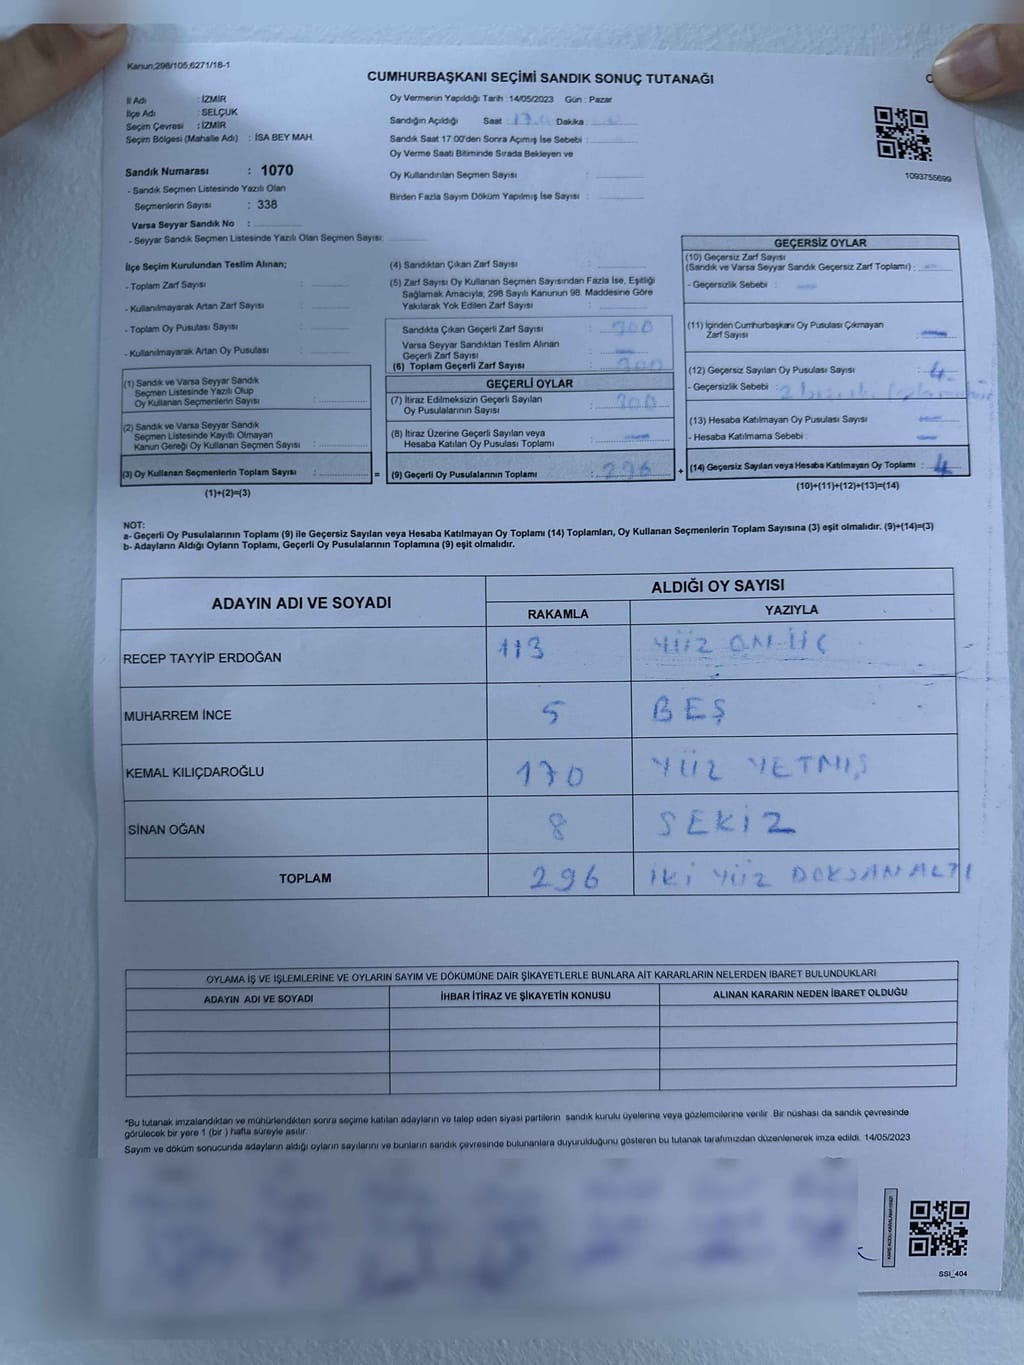 Kanun;298/105,6271/18-1
CUMHURBAŞKANI SEÇİMİ SANDIK SONUÇ TUTANAĞI
İl Adı : İZMİR
İlçe Adı : SELÇUK
Seçim Çevresi : İZMİR
Seçim Bölgesi (Mahalle Adı) : İSA BEY MAH.
Sandık Numarası : 1070
- Sandık Seçmen Listesinde Yazılı Olan
Seçmenlerin Sayısı : 338
Varsa Seyyar Sandık No :
- Seyyar Sandık Seçmen Listesinde Yazılı Olan Seçmen Sayısı:
Oy Vermenin Yapıldığı Tarih : 14/05/2023 Gün : Pazar
Sandığın Açıldığı Saat : Dakika :
Sandık Saat 17:00'den Sonra Açımış İse Sebebi :
Oy Verme Saati Bitiminde Sırada Bekleyen ve
Oy Kullandırılan Seçmen Sayısı :
Birden Fazla Sayım Döküm Yapılmış İse Sayısı :
1093755699
İlçe Seçim Kurulundan Teslim Alınan;
- Toplam Zarf Sayısı :
- Kullanılmayarak Artan Zarf Sayısı :
- Toplam Oy Pusulası Sayısı :
- Kullanılmayarak Artan Oy Pusulası :
(1) Sandık ve Varsa Seyyar Sandık
Seçmen Listesinde Yazılı Olup
Oy Kullanan Seçmenlerin Sayısı :
(2) Sandık ve Varsa Seyyar Sandık
Seçmen Listesinde Kayıtlı Olmayan
Kanun Gereği Oy Kullanan Seçmen Sayısı :
(3) Oy Kullanan Seçmenlerin Toplam Sayısı :
(1)+(2)=(3)
(4) Sandıktan Çıkan Zarf Sayısı :
(5) Zarf Sayısı Oy Kullanan Seçmen Sayısından Fazla İse, Eşitliği
Sağlamak Amacıyla, 298 Sayılı Kanunun 98. Maddesine Göre
Yakılarak Yok Edilen Zarf Sayısı :
Sandıkta Çıkan Geçerli Zarf Sayısı : 300
Varsa Seyyar Sandıktan Teslim Alınan
Geçerli Zarf Sayısı : -
(6) Toplam Geçerli Zarf Sayısı : 300
GEÇERLİ OYLAR
(7) İtiraz Edilmeksizin Geçerli Sayılan
Oy Pusulalarının Sayısı : 300
(8) İtiraz Üzerine Geçerli Sayılan veya
Hesaba Katılan Oy Pusulası Toplamı : -
= (9) Geçerli Oy Pusulalarının Toplamı : 296 +
GEÇERSİZ OYLAR
(10) Geçersiz Zarf Sayısı
(Sandık ve Varsa Seyyar Sandık Geçersiz Zarf Toplamı) : -
- Geçersizlik Sebebi : -
(11) İçinden Cumhurbaşkanı Oy Pusulası Çıkmayan
Zarf Sayısı : -
(12) Geçersiz Sayılan Oy Pusulası Sayısı : 4
- Geçersizlik Sebebi :
(13) Hesaba Katılmayan Oy Pusulası Sayısı : -
- Hesaba Katılmama Sebebi : -
(14) Geçersiz Sayılan veya Hesaba Katılmayan Oy Toplamı : 4
(10)+(11)+(12)+(13)=(14)
NOT:
a- Geçerli Oy Pusulalarının Toplamı (9) ile Geçersiz Sayılan veya Hesaba Katılmayan Oy Toplamı (14) Toplamları, Oy Kullanan Seçmenlerin Toplam Sayısına (3) eşit olmalıdır. (9)+(14)=(3)
b- Adayların Aldığı Oyların Toplamı, Geçerli Oy Pusulalarının Toplamına (9) eşit olmalıdır.
ADAYIN ADI VE SOYADI ALDIĞI OY SAYISI
RAKAMLA YAZIYLA
RECEP TAYYİP ERDOĞAN 113 YÜZ ON ÜÇ
MUHARREM İNCE 5 BEŞ
KEMAL KILIÇDAROĞLU 170 YÜZ YETMİŞ
SİNAN OĞAN 8 SEKİZ
TOPLAM 296 İKİ YÜZ DOKSAN ALTI
OYLAMA İŞ VE İŞLEMLERİNE VE OYLARIN SAYIM VE DÖKÜMÜNE DAİR ŞİKAYETLERLE BUNLARA AİT KARARLARIN NELERDEN İBARET BULUNDUKLARI
ADAYIN ADI VE SOYADI İHBAR İTİRAZ VE ŞİKAYETİN KONUSU ALINAN KARARIN NEDEN İBARET OLDUĞU
*Bu tutanak imzalandıktan ve mühürlendikten sonra seçime katılan adayların ve talep eden siyasi partilerin sandık kurulu üyelerine veya gözlemcilerine verilir. Bir nüshası da sandık çevresinde
görülecek bir yere 1 (bir ) hafta süreyle asılır.
Sayım ve döküm sonucunda adayların aldığı oyların sayılarını ve bunların sandık çevresinde bulunanlara duyurulduğunu gösteren bu tutanak tarafımızdan düzenlenerek imza edildi. 14/05/2023
SSI_404